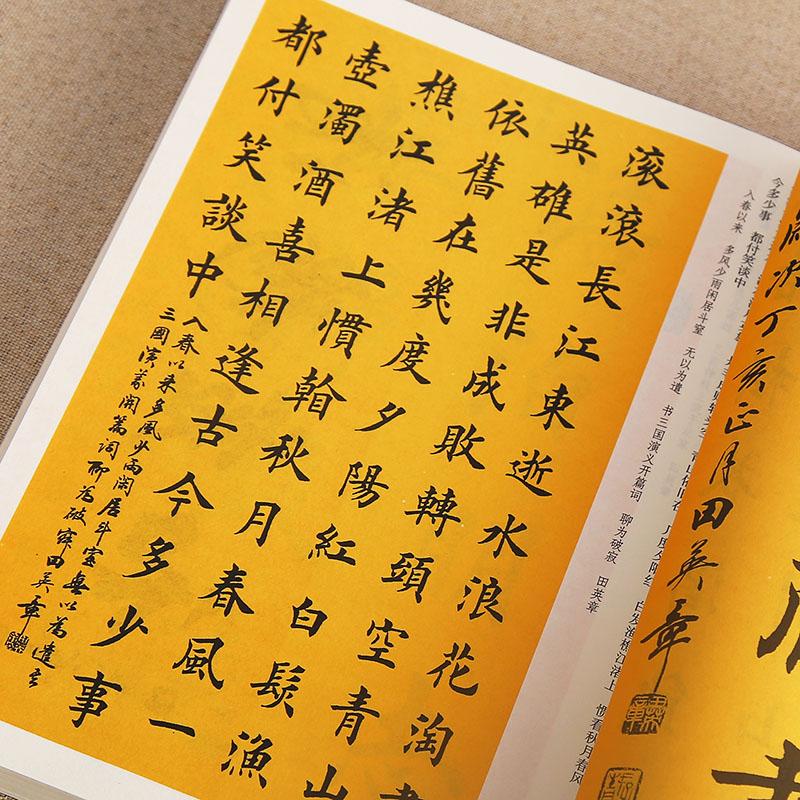 次丁亥正月田英章
几度夕阳红 白发渔樵江渚上 惯看秋月春风
今多少事 都付笑谈中
入春以来 多风少雨闲居斗室 无以为遣 书三国演义开篇词 聊为破寂 田英章
滚滚長江東逝水浪花淘
英雄是非成敗轉頭空青山
依舊在幾度夕陽紅白髮漁
樵江渚上慣看秋月春風一
壺濁酒喜相逢古今多少事
都付笑談中
入春以来多風少雨閑居斗室無以為遣書
三國演義開篇詞聊為破寂田英章